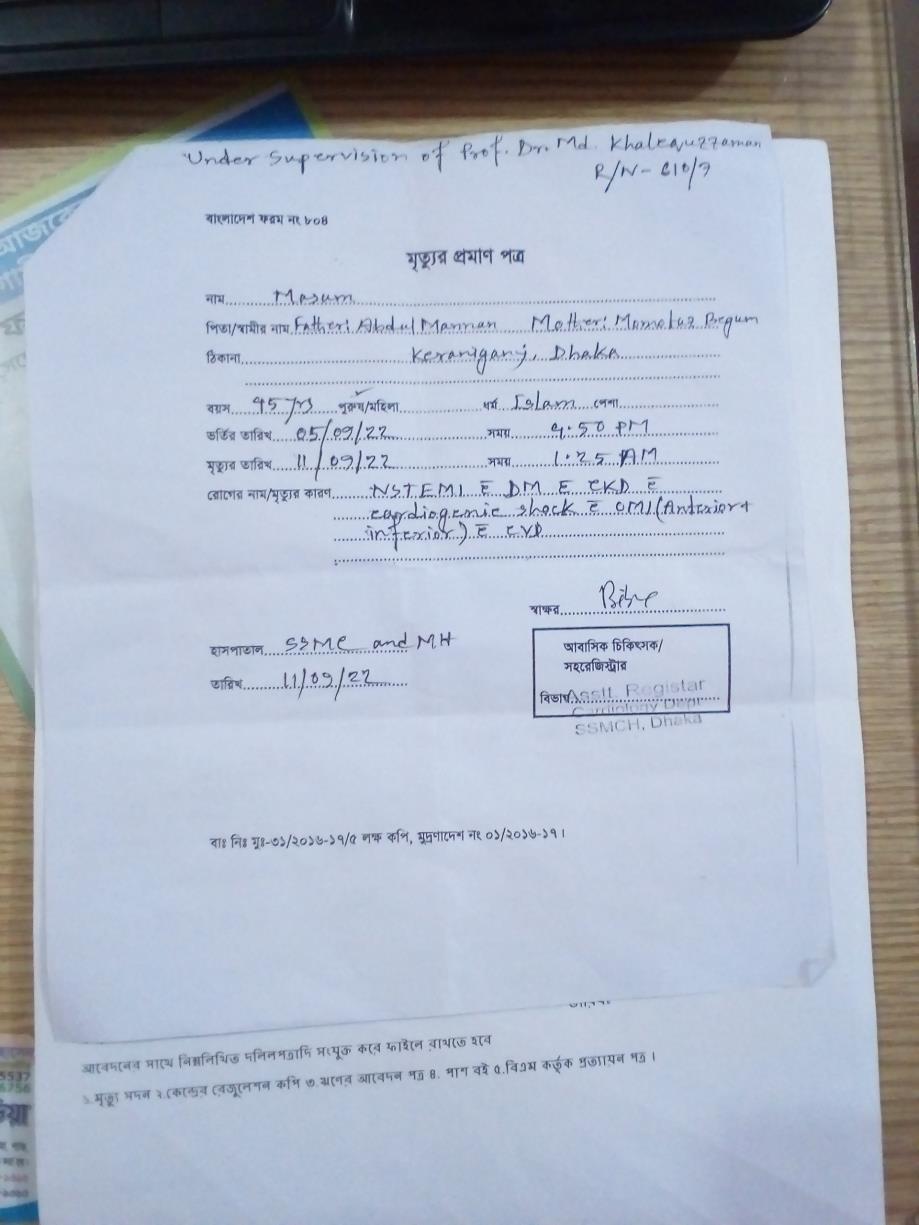 Under Supervision of Prof. Dr. Md. Khalequzzaman
R/N - 610/7
বাংলাদেশ ফরম নং ৮০৪
মৃত্যুর প্রমাণ পত্র
নাম Masum
পিতা/স্বামীর নাম Father: Abdul Mannan Mother: Momotaz Begum
ঠিকানা Keraniganj, Dhaka
বয়স 45 পুরুষ/মহিলা ধর্ম Islam পেশা
ভর্তির তারিখ 05/09/22 সময় 4.50 PM
মৃত্যুর তারিখ 11/09/22 সময় 1.25 AM
রোগের নাম/মৃত্যুর কারণ NSTEMI c̄ DM c̄ CKD c̄
cardiogenic shock c̄ OMI (Anterior+
inferior) c̄ CVD
স্বাক্ষর
হাসপাতাল SSMC and MH
তারিখ 11/09/22
আবাসিক চিকিৎসক/
সহরেজিস্ট্রার
বিভাগ Asstt. Registar
Cardiology Dept
SSMCH, Dhaka
বাঃ নিঃ মুঃ-৩১/২০১৬-১৭/৫ লক্ষ কপি, মুদ্রণাদেশ নং ০১/২০১৬-১৭।
আবেদনের সাথে নিম্নলিখিত দলিলপত্রাদি সংযুক্ত করে ফাইলে রাখতে হবে
১.মৃত্যু সদন ২.কেন্দ্রের রেজুলেশন কপি ৩.ঋণের আবেদন পত্র ৪. পাশ বই ৫.বিএম কর্তৃক প্রত্যায়ন পত্র ।